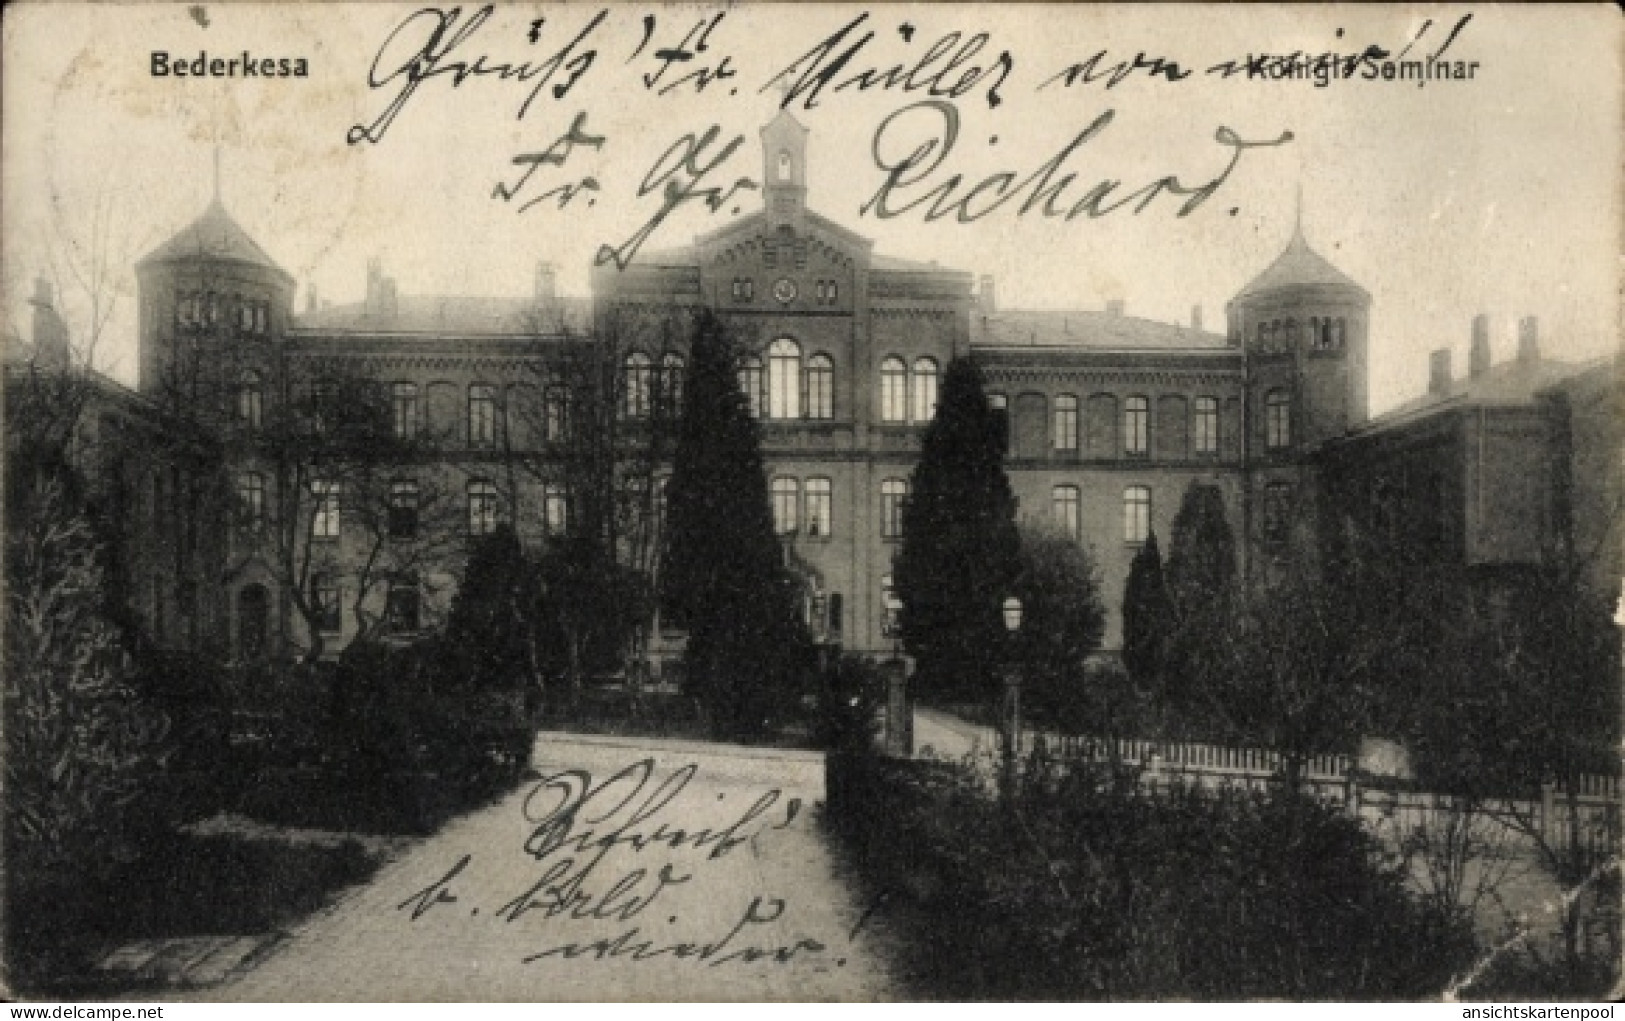 Bederkesa
Königl. Seminar
Grüß' Fr. Müller von mir
Fr. Gr. Richard.
Schreib'
b. bald.
wieder.
oldthing.com
ansichtskartenpool